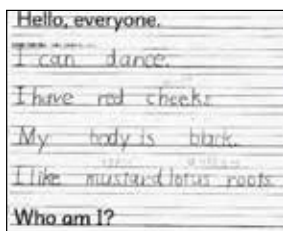 Hello, everyone.
I can dance.
I have red cheeks.
My body is black.
I like mustard lotus roots.
Who am I?